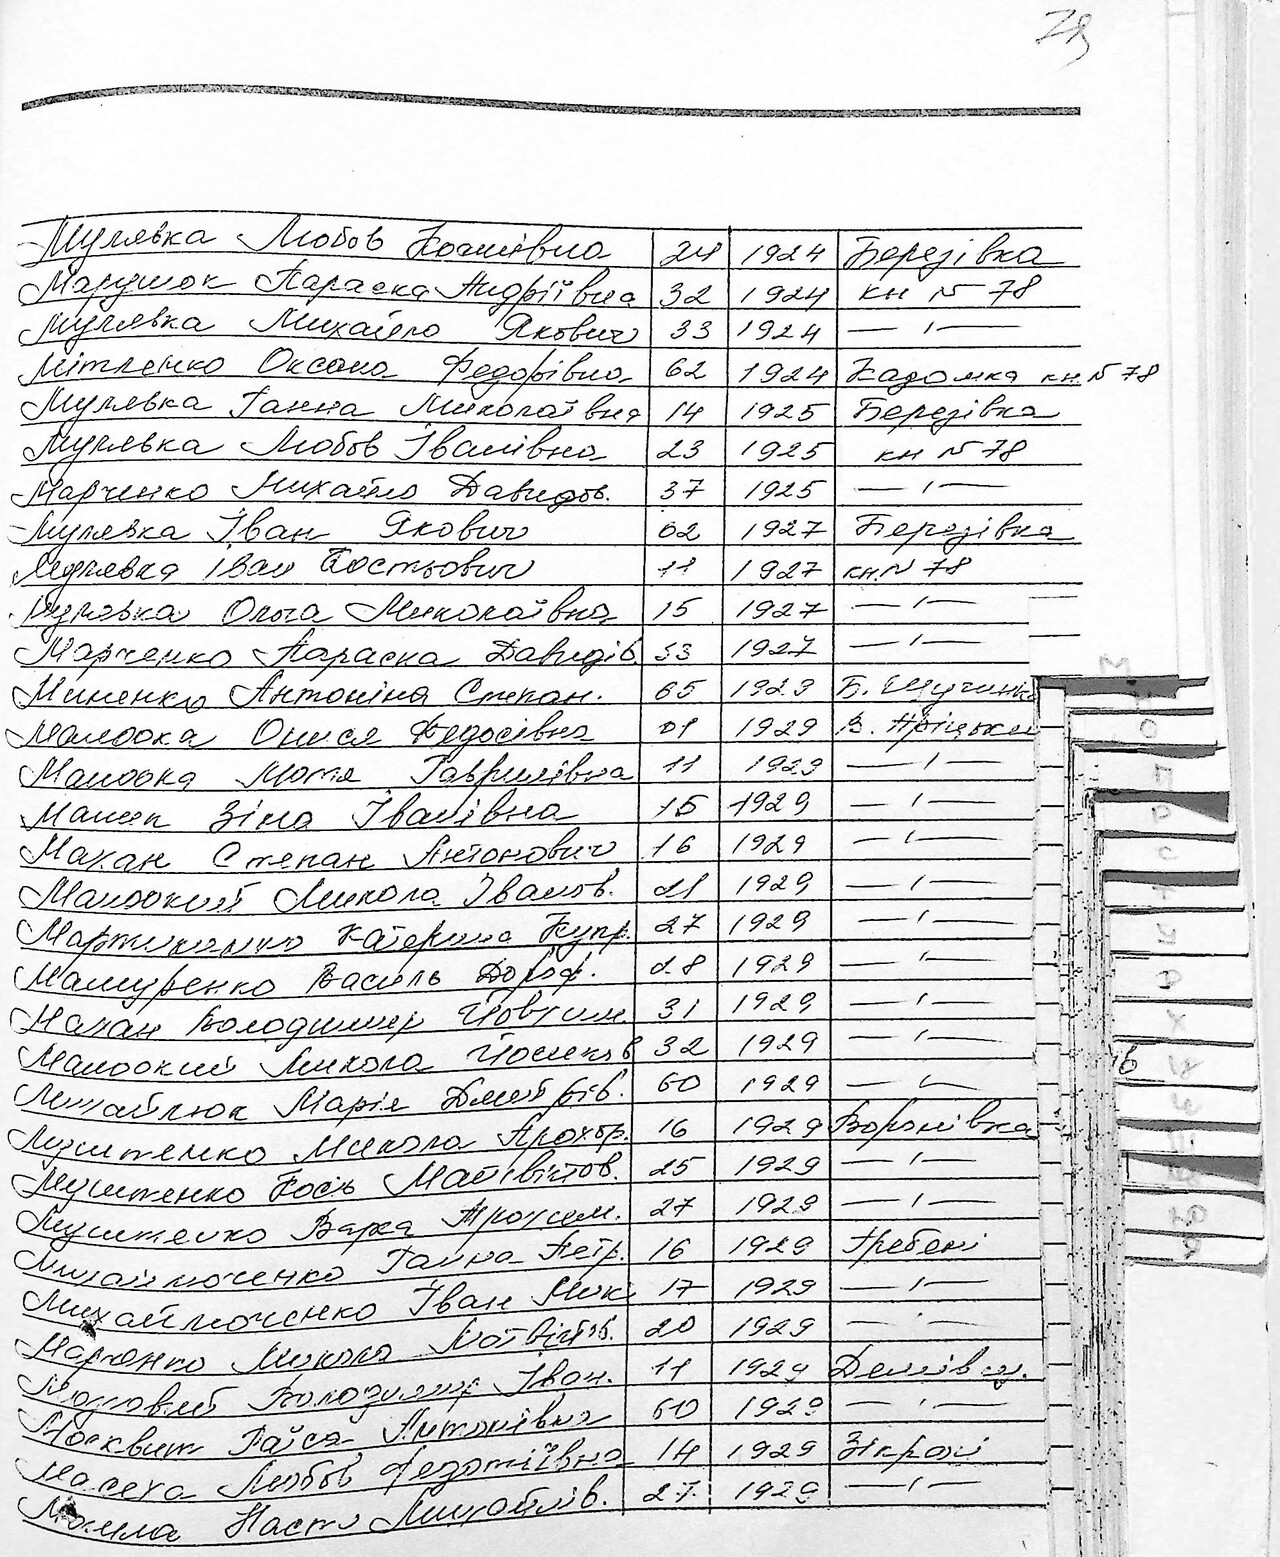 79
Мулявка Любов Костівна 24 1924 Березівка
Марушок Параска Андріївна 32 1924 кн № 78
Мулявка Михайло Якович 33 1924 — " —
Мітленко Оксана Федорівна 62 1924 кн. № 78
Мулявка Ганна Миколаївна 14 1925 Березівка
Мулявка Любов Іванівна 23 1925 кн № 78
Марченко Михайло Давидов. 37 1925 — " —
Мулявка Іван Якович 02 1927 Березівка
Мулявка Іван Костьович 11 1927 кн. № 78
Мулявка Ольга Миколаївна 15 1927 — " —
Марченко Параска Давидів. 53 1927 — " —
Миненко Антоніна Степан. 65 1929 Б. Щучинка
Онися Федосівна 01 1929 В.
Мотя Гаврилівна 11 1929 — " —
Зіна Іванівна 15 1929 — " —
Махан Степан Антонович 16 1929 — " —
Микола Іванов. 21 1929 — " —
Катерина Купр. 27 1929 — " —
Василь Дороф. 28 1929 — " —
Махан Володимир Йовхим. 31 1929 — " —
Микола Йосипов 32 1929 — " —
Михайлюк Марія Дмитрів. 60 1929 — " —
Микола Прохор. 16 1929 Воронівка
25 1929 — " —
Варка Трохим. 27 1929 — " —
Михайлюченко Ганна Петр. 16 1929 Гребені
Михайлюченко Іван Мик. 17 1929 — " —
Марченко Микола Матвійов. 20 1929 — " —
Володимир Іван. 11 1929
Москвит Раїса Антонівна 60 1929 — " —
Масеха Любов Федотіївна 14 1929
Настя Михайлів. 27. 1929 — " —